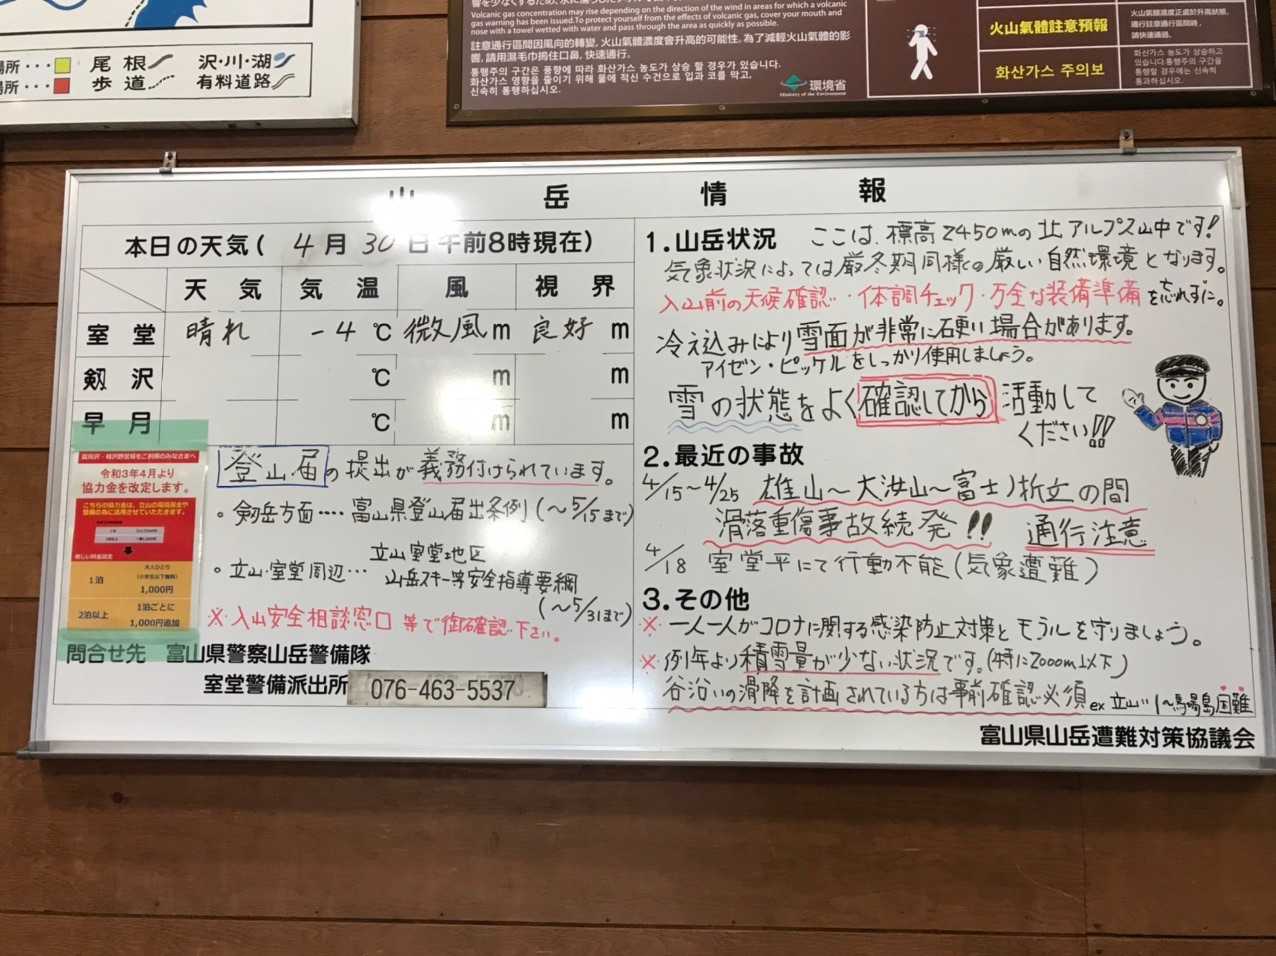 場所・・・
場所・・・
尾根
歩道
沢・川・湖
有料道路
Volcanic gas concentration may rise depending on the direction of the wind in areas for which a volcanic
gas warning has been issued.To protect yourself from the effects of volcanic gas, cover your mouth and
nose with a towel wetted with water and pass through the area as quickly as possible.
註意通行區間因風向的轉變，火山氣體濃度會升高的可能性。為了減輕火山氣體的影
響，請用濕毛巾摀住口鼻，快速通行。
통행주의 구간은 풍향에 따라 화산가스 농도가 상승 할 경우가 있습니다.
화산가스 영향을 줄이기 위해 물에 적신 수건으로 입과 코를 막고,
신속히 통행하십시오.
環境省
Ministry of the Environment
火山氣體註意預報
火山氣體濃度正處於升高狀態，
通行註意區間時，
請快速通過。
화산가스 주의보
화산가스 농도가 상승하고
있습니다 통행주의 구간을
통행할 경우에는 신속히
통행하십시오.
山岳情報
本日の天気( 4月30日午前8時現在)
天気 気温 風 視界
室堂 晴れ -4℃ 微風m 良好m
剱沢 ℃ m m
早月 ℃ m m
登山届の提出が義務付けられています。
・剱岳方面・・・・富山県登山届出条例(～5/15まで)
・立山・室堂周辺・・・立山室堂地区
山岳スキー等安全指導要綱
(～5/31まで)
※入山安全相談窓口等で御確認下さい。
令和3年4月より
協力金を改定します。
1泊
1,000円
2泊以上
1泊ごとに
1,000円追加
問合せ先 富山県警察山岳警備隊
室堂警備派出所 076-463-5537
1.山岳状況 ここは、標高2450mの北アルプス山中です!
気象状況によっては厳冬期同様の厳しい自然環境となります。
入山前の天候確認・体調チェック・万全な装備準備を忘れずに。
冷え込みにより雪面が非常に硬い場合があります。
アイゼン・ピッケルをしっかり使用しましょう。
雪の状態をよく確認してから活動して
ください!!
2.最近の事故
4/15～4/25 雄山～大汝山～富士ノ折立の間
滑落重傷事故続発!! 通行注意
4/18 室堂平にて行動不能(気象遭難)
3.その他
※ 一人一人がコロナに関する感染防止対策とモラルを守りましょう。
※ 例年より積雪量が少ない状況です。(特に2000m以下)
谷沿いの滑降を計画されている方は事前確認必須 ex 立山川～馬場島困難
富山県山岳遭難対策協議会